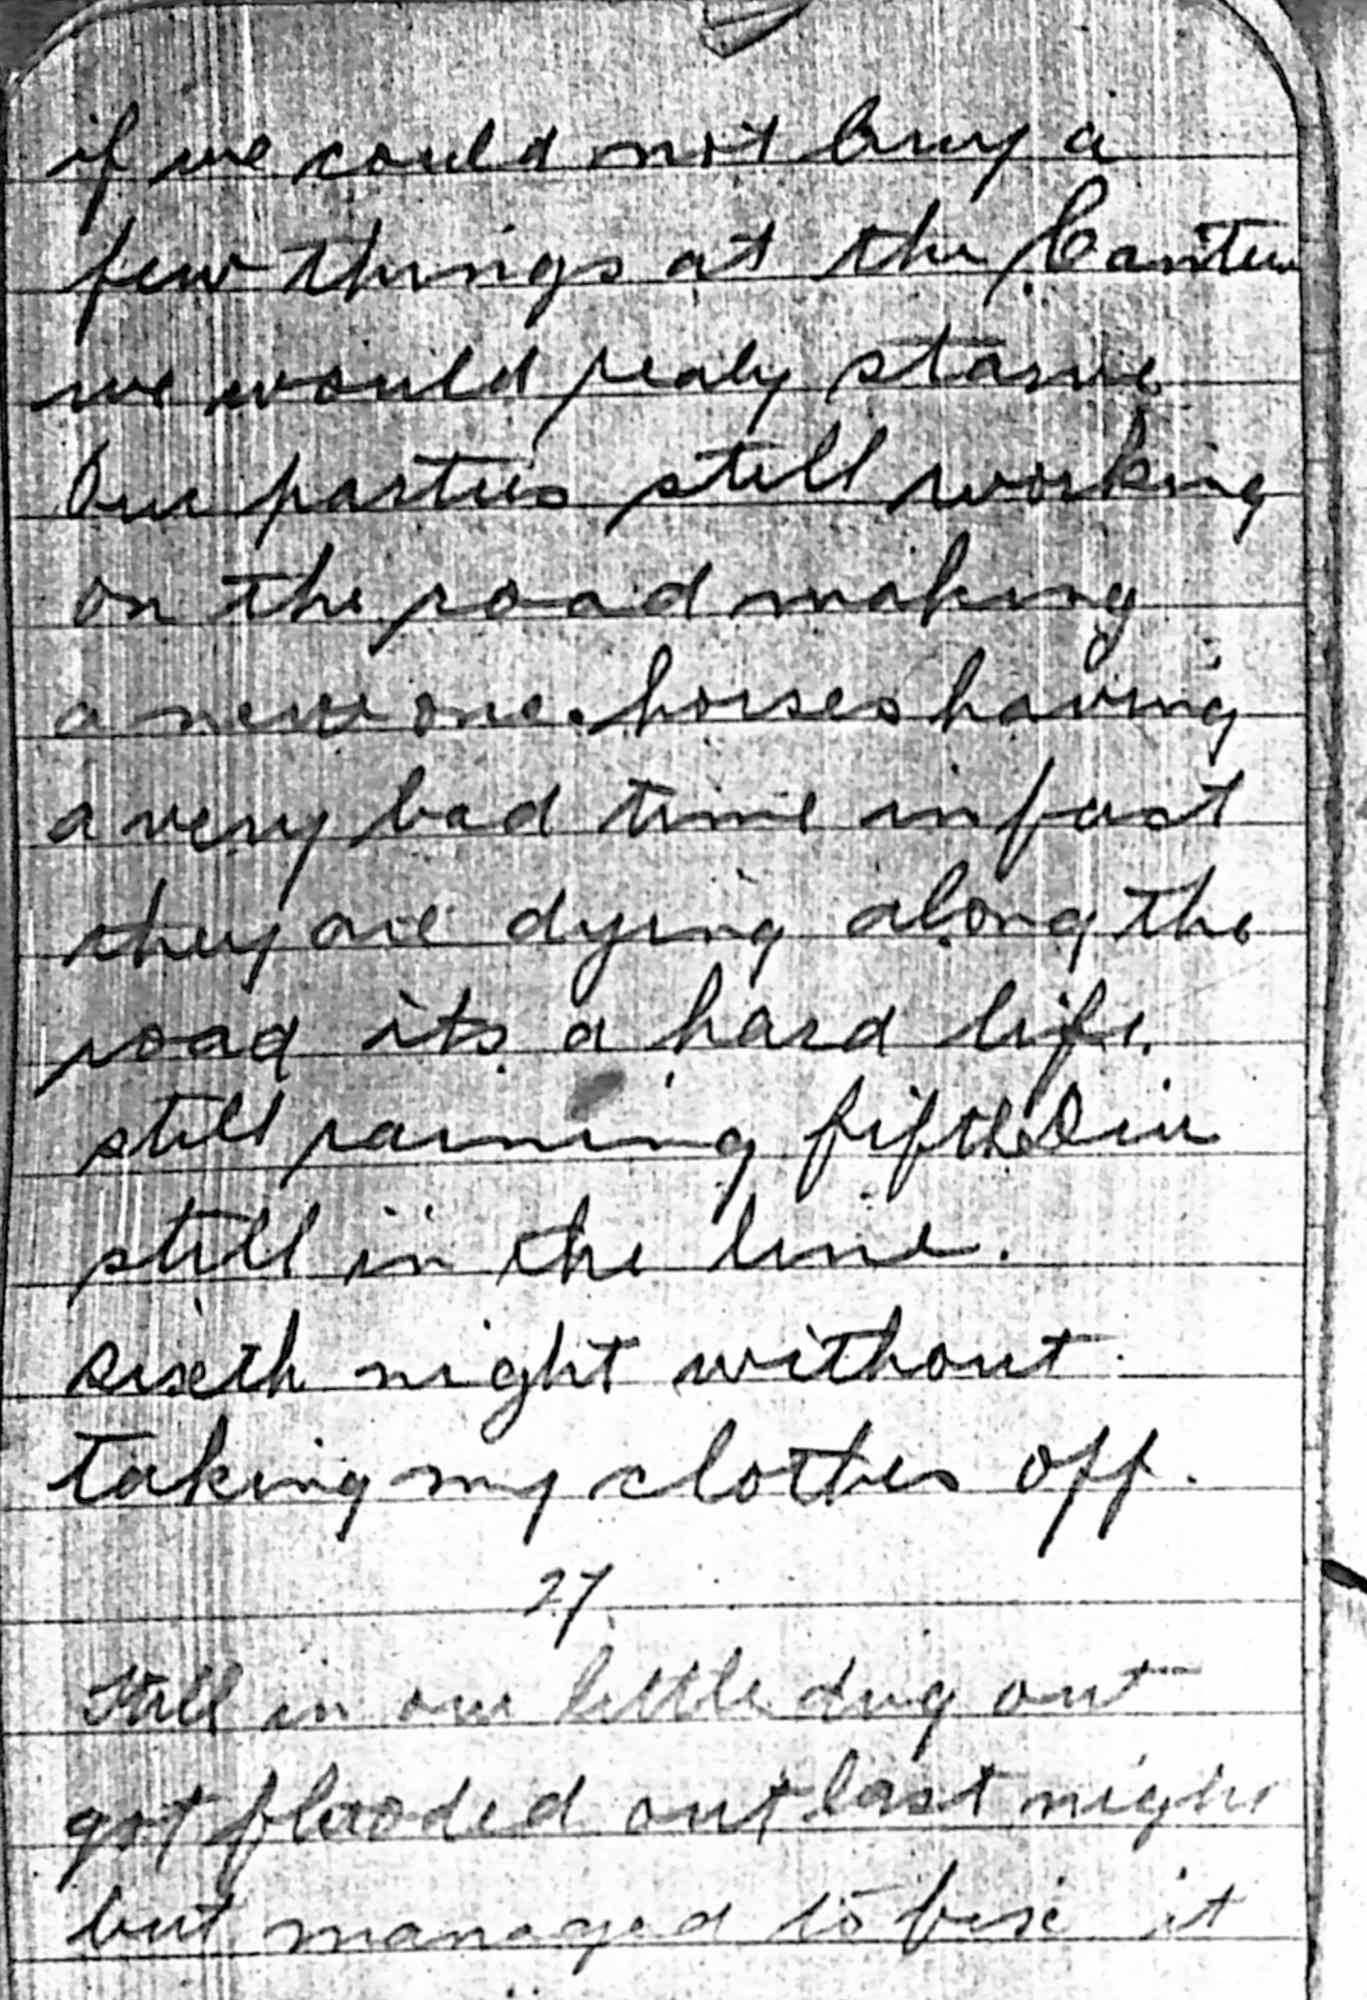 if we could not buy a
few things at the Canteen
we would realy starve
Our parties still working
on the road making
a new one. horses having
a very bad time infact
they are dying along the
road its a hard life.
still raining fifth Div
still in the line.
sixeth night without
taking my clothes off.
27
Still in our little dug out
got flooded out last night
but managed to fixe it